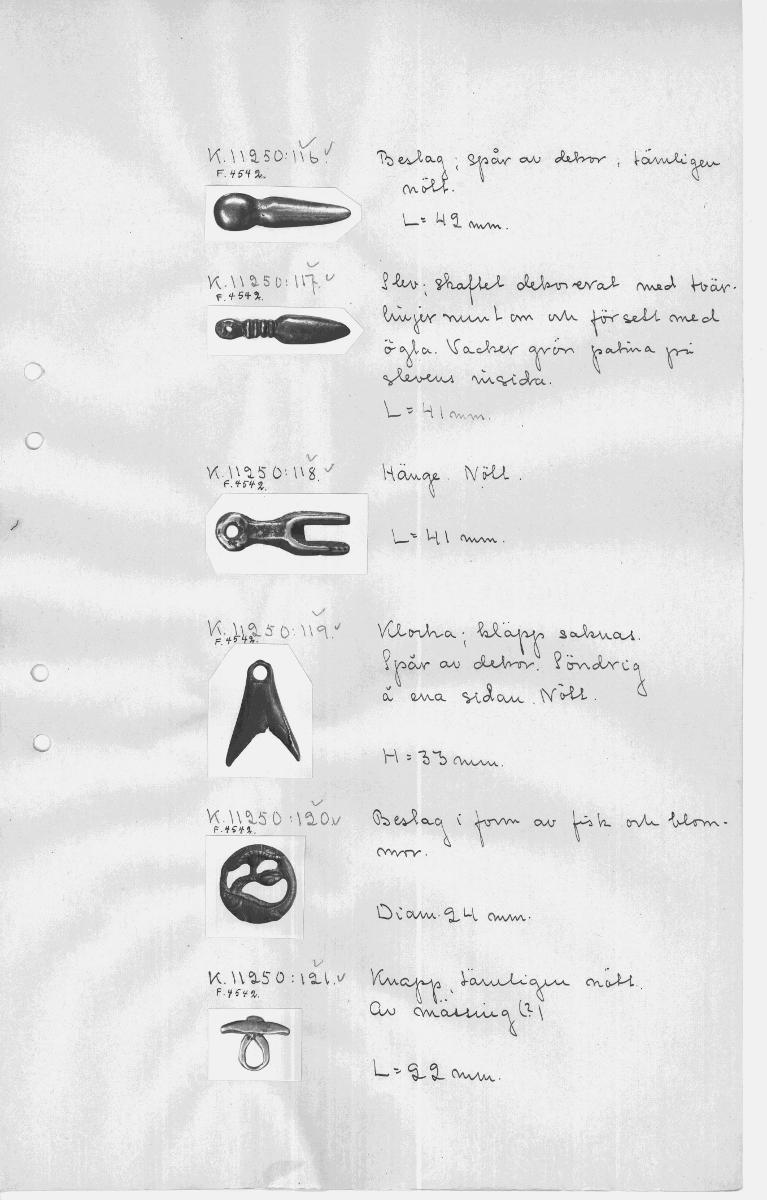 K.11250:116. Beslag; spår av dekor, tämligen
F.4542. nött.
L = 42 mm.
K.11250:117. Slev; skaftet dekorerat med tvär-
F.4542. linjer runt om och försett med
ögla. Vacker grön patina på
slevens insida.
L = 41 mm.
K.11250:118. Hänge. Nött.
F.4542.
L = 41 mm.
K.11250:119. Klocka; kläpp saknas.
F.4542. Spår av dekor. Söndrig
å ena sidan. Nött.
H = 33 mm.
K.11250:120. Beslag i form av fisk och blom-
F.4542. mor.
Diam. 24 mm.
K.11250:121. Knapp, tämligen nött.
F.4542. Av mässing (?)
L = 22 mm.